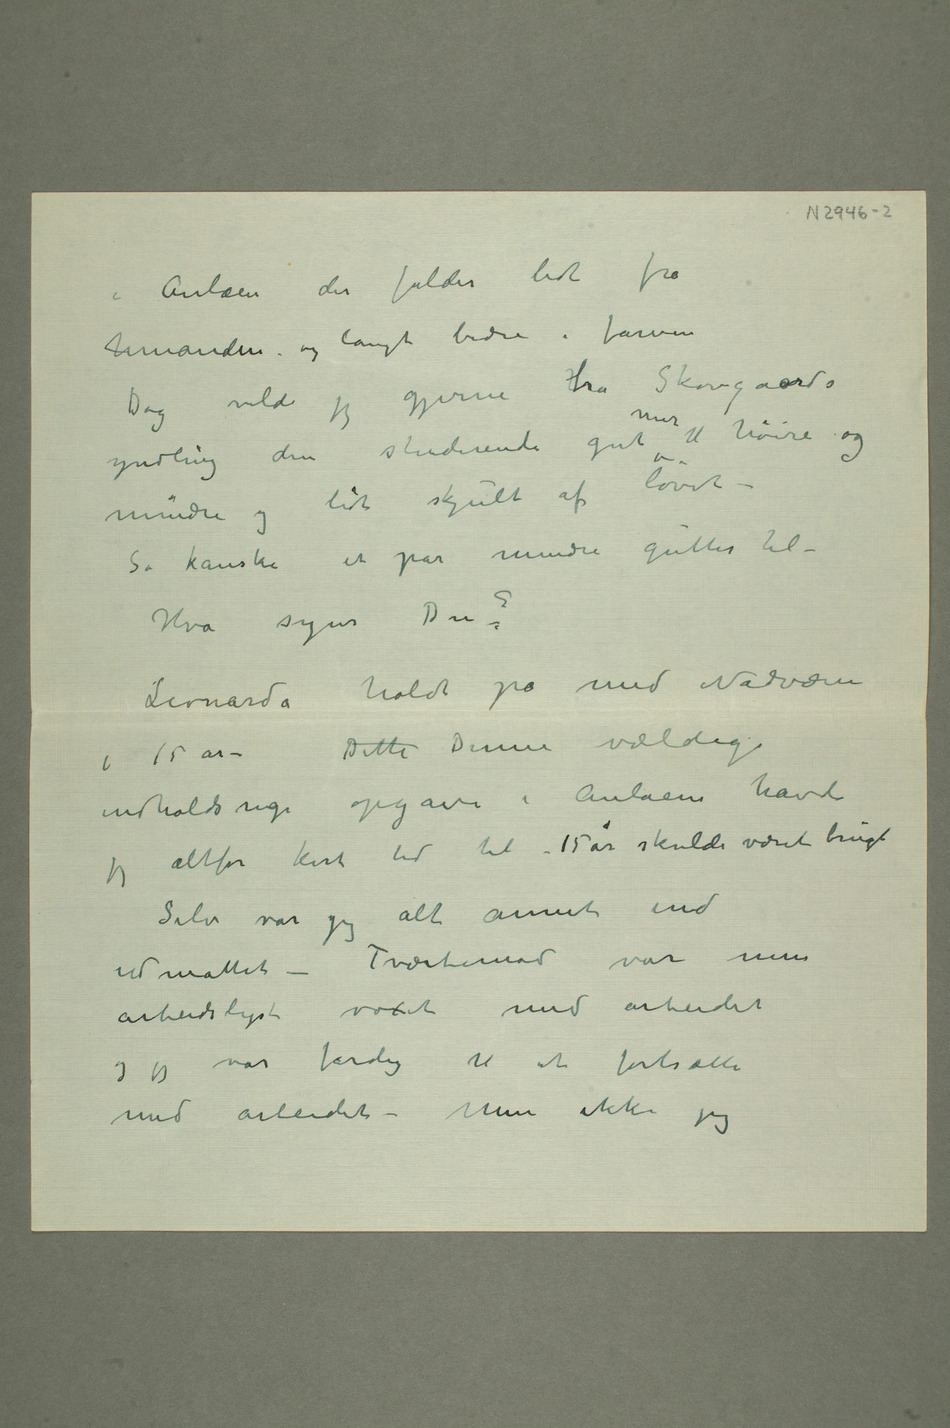 N2946-2
i Aulaen der falder lidt fra
hinanden. og langt bedre i farven
Dog vilde jeg gjerne ha Skovgaards
yndling den studerende gut mer til höire og
mindre og lidt skjult af lövet –
Så kanske et par mindre gutter til –
Hva synes Du?
Leonarda holdt på med Nadværen
i 15 år – Dette Denne vældige
indholdsrige opgave i Aulaen havde
jeg altfor kort tid til – 15 år skulde været brugt
Selv var jeg alt annet end
udmattet – Tværtimod var min
arbeidslyst voxet med arbeidet
og jeg var færdig til at fortsætte
med arbeidet – Men ikke jeg